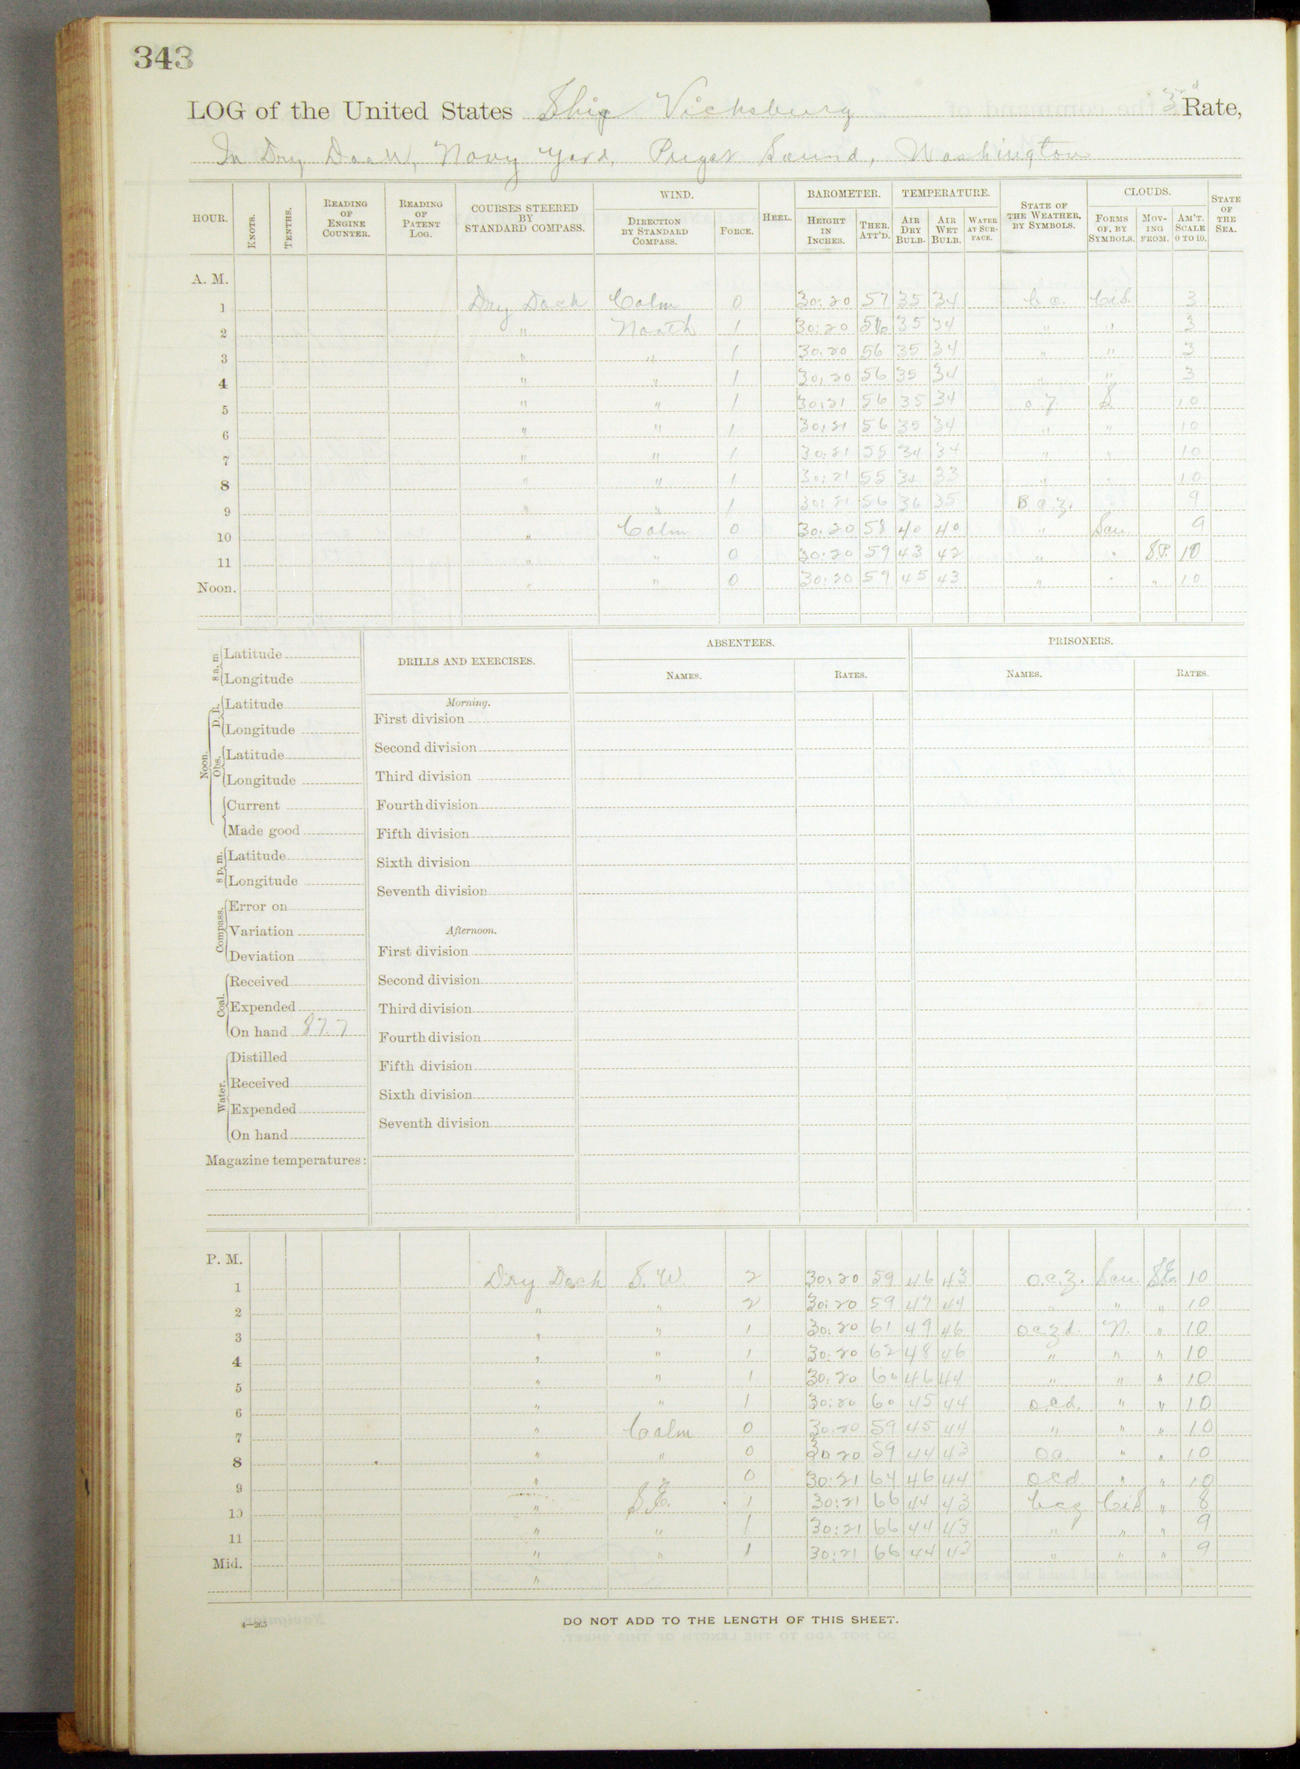 343
LOG of the United States Ship Vicksburg 3rd Rate,
In Dry Dock, Navy Yard, Puget Sound, Washington
HOUR. KNOTS. TENTHS. READING OF ENGINE COUNTER. READING OF PATENT LOG. COURSES STEERED BY STANDARD COMPASS. WIND. DIRECTION BY STANDARD COMPASS. FORCE. HEEL. BAROMETER. HEIGHT IN INCHES. THER. ATT'D. TEMPERATURE. AIR DRY BULB. AIR WET BULB. WATER AT SURFACE. STATE OF THE WEATHER, BY SYMBOLS. CLOUDS. FORMS OF, BY SYMBOLS. MOVING FROM. AM'T. SCALE 0 TO 10. STATE OF THE SEA.
A. M.
1 Dry Dock Calm 0 30.20 57 35 34 b.c. 3
2 " North 1 30.20 56 35 34 " " 3
3 " " 1 30.20 56 35 34 " " 3
4 " " 1 30.20 56 35 34 " " 3
5 " " 1 30.21 56 35 34 S 10
6 " " 1 30.21 56 35 34 " " 10
7 " " 1 30.21 55 34 34 " " 10
8 " " 1 30.21 55 34 33 " " 10
9 " " 1 30.21 56 36 35 B.c.z. " 9
10 " Calm 0 30.20 58 40 40 " Scu 9
11 " " 0 30.20 59 43 42 " " 10
Noon. " " 0 30.20 59 45 43 " " " 10
8 a. m. Latitude
Longitude
Noon. D. R. Latitude
Longitude
Obs. Latitude
Longitude
Current
Made good
8 p. m. Latitude
Longitude
Compass. Error on
Variation
Deviation
Coal. Received
Expended
On hand 87.7
Water. Distilled
Received
Expended
On hand
Magazine temperatures:
DRILLS AND EXERCISES.
Morning.
First division
Second division
Third division
Fourth division
Fifth division
Sixth division
Seventh division
Afternoon.
First division
Second division
Third division
Fourth division
Fifth division
Sixth division
Seventh division
ABSENTEES.
NAMES. RATES.
PRISONERS.
NAMES. RATES.
P. M.
1 Dry Dock S.W. 2 30.20 59 46 43 o.c.z. Scu S.E. 10
2 " " 2 30.20 59 47 44 " " " 10
3 " " 1 30.20 61 49 46 oczd. N. " 10
4 " " 1 30.20 62 48 46 " " " 10
5 " " 1 30.20 60 46 44 " " " 10
6 " " 1 30.20 60 45 44 ocd. " " 10
7 " Calm 0 30.20 59 45 44 " " " 10
8 " " 0 30.20 59 44 43 oc. " " 10
9 " " 0 30.21 64 46 44 ocd " " 10
10 " S.E. 1 30.21 66 44 43 bcz " 8
11 " " 1 30.21 66 44 43 " " " 9
Mid. " " 1 30.21 66 44 43 " " " 9
"
4—265
DO NOT ADD TO THE LENGTH OF THIS SHEET.